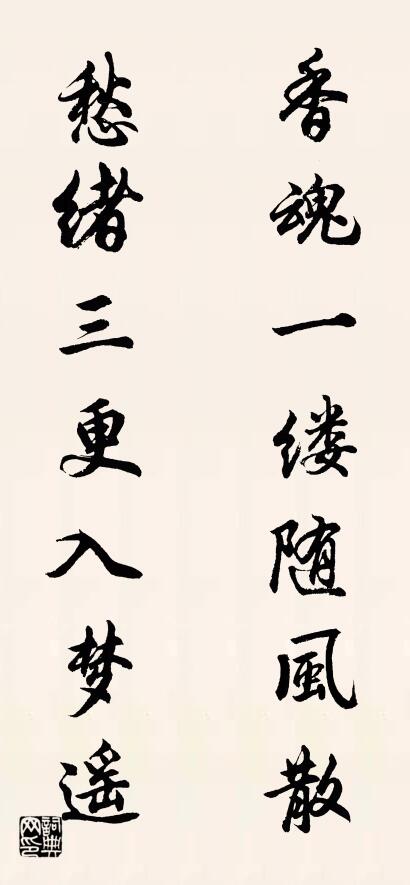 香魂一缕随風散
愁绪三更入梦遥